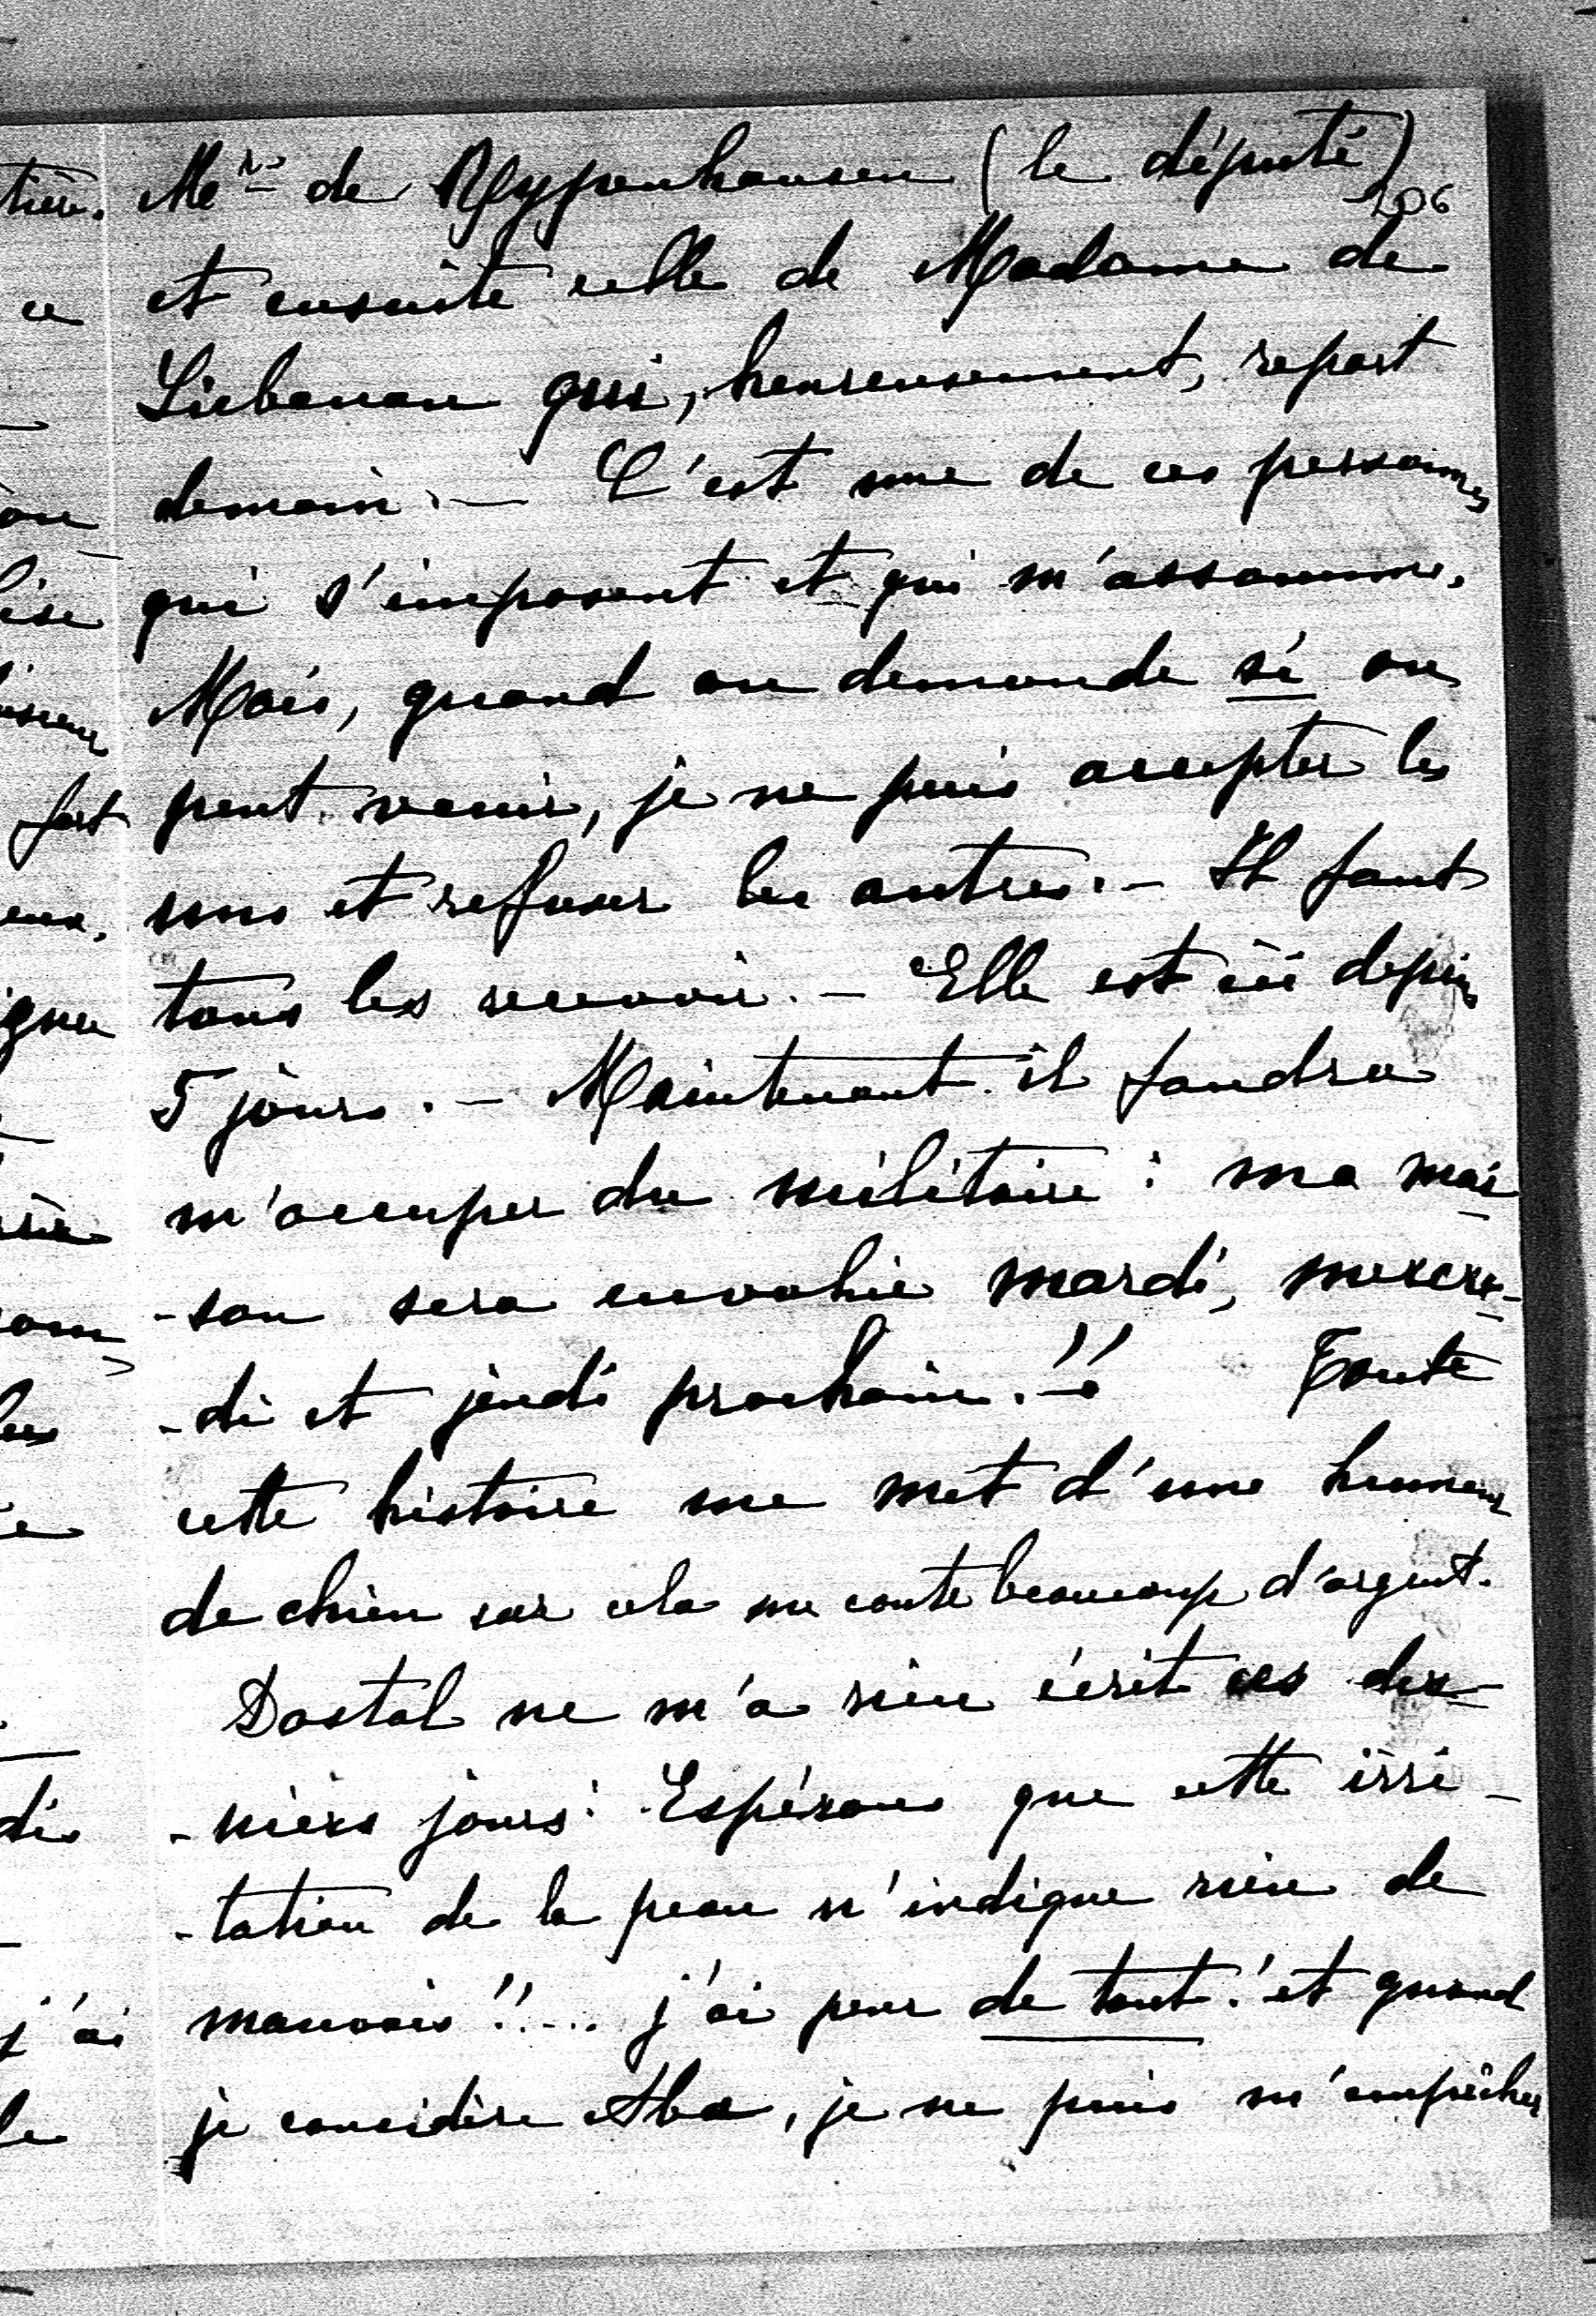 Mr. de Nypenhausen (le député)
206
et ensuite celle de Madame de
Liebenau qui, heureusement, repart
demain. — C'est une de ces personnes
qui s'imposent et qui m'assomme.
Mais, quand on demande si on
peut venir, je ne puis accepter les
uns et refuser les autres. — Il faut
tous les recevoir. — Elle est ici depuis
5 jours. — Maintenant il faudra
m'occuper du militaire : ma mai-
-son sera envahie mardi, mercre-
-di et jeudi prochain.!! Toute
cette histoire me met d'une humeur
de chien car cela me coute beaucoup d'argent.
Dostal ne m'a rien écrit ces der-
-niers jours: Espérons que cette irri-
-tation de la peau n'indique rien de
mauvais!!... j'ai peur de tout! et quand
je considère Aba, je ne puis m'empêcher